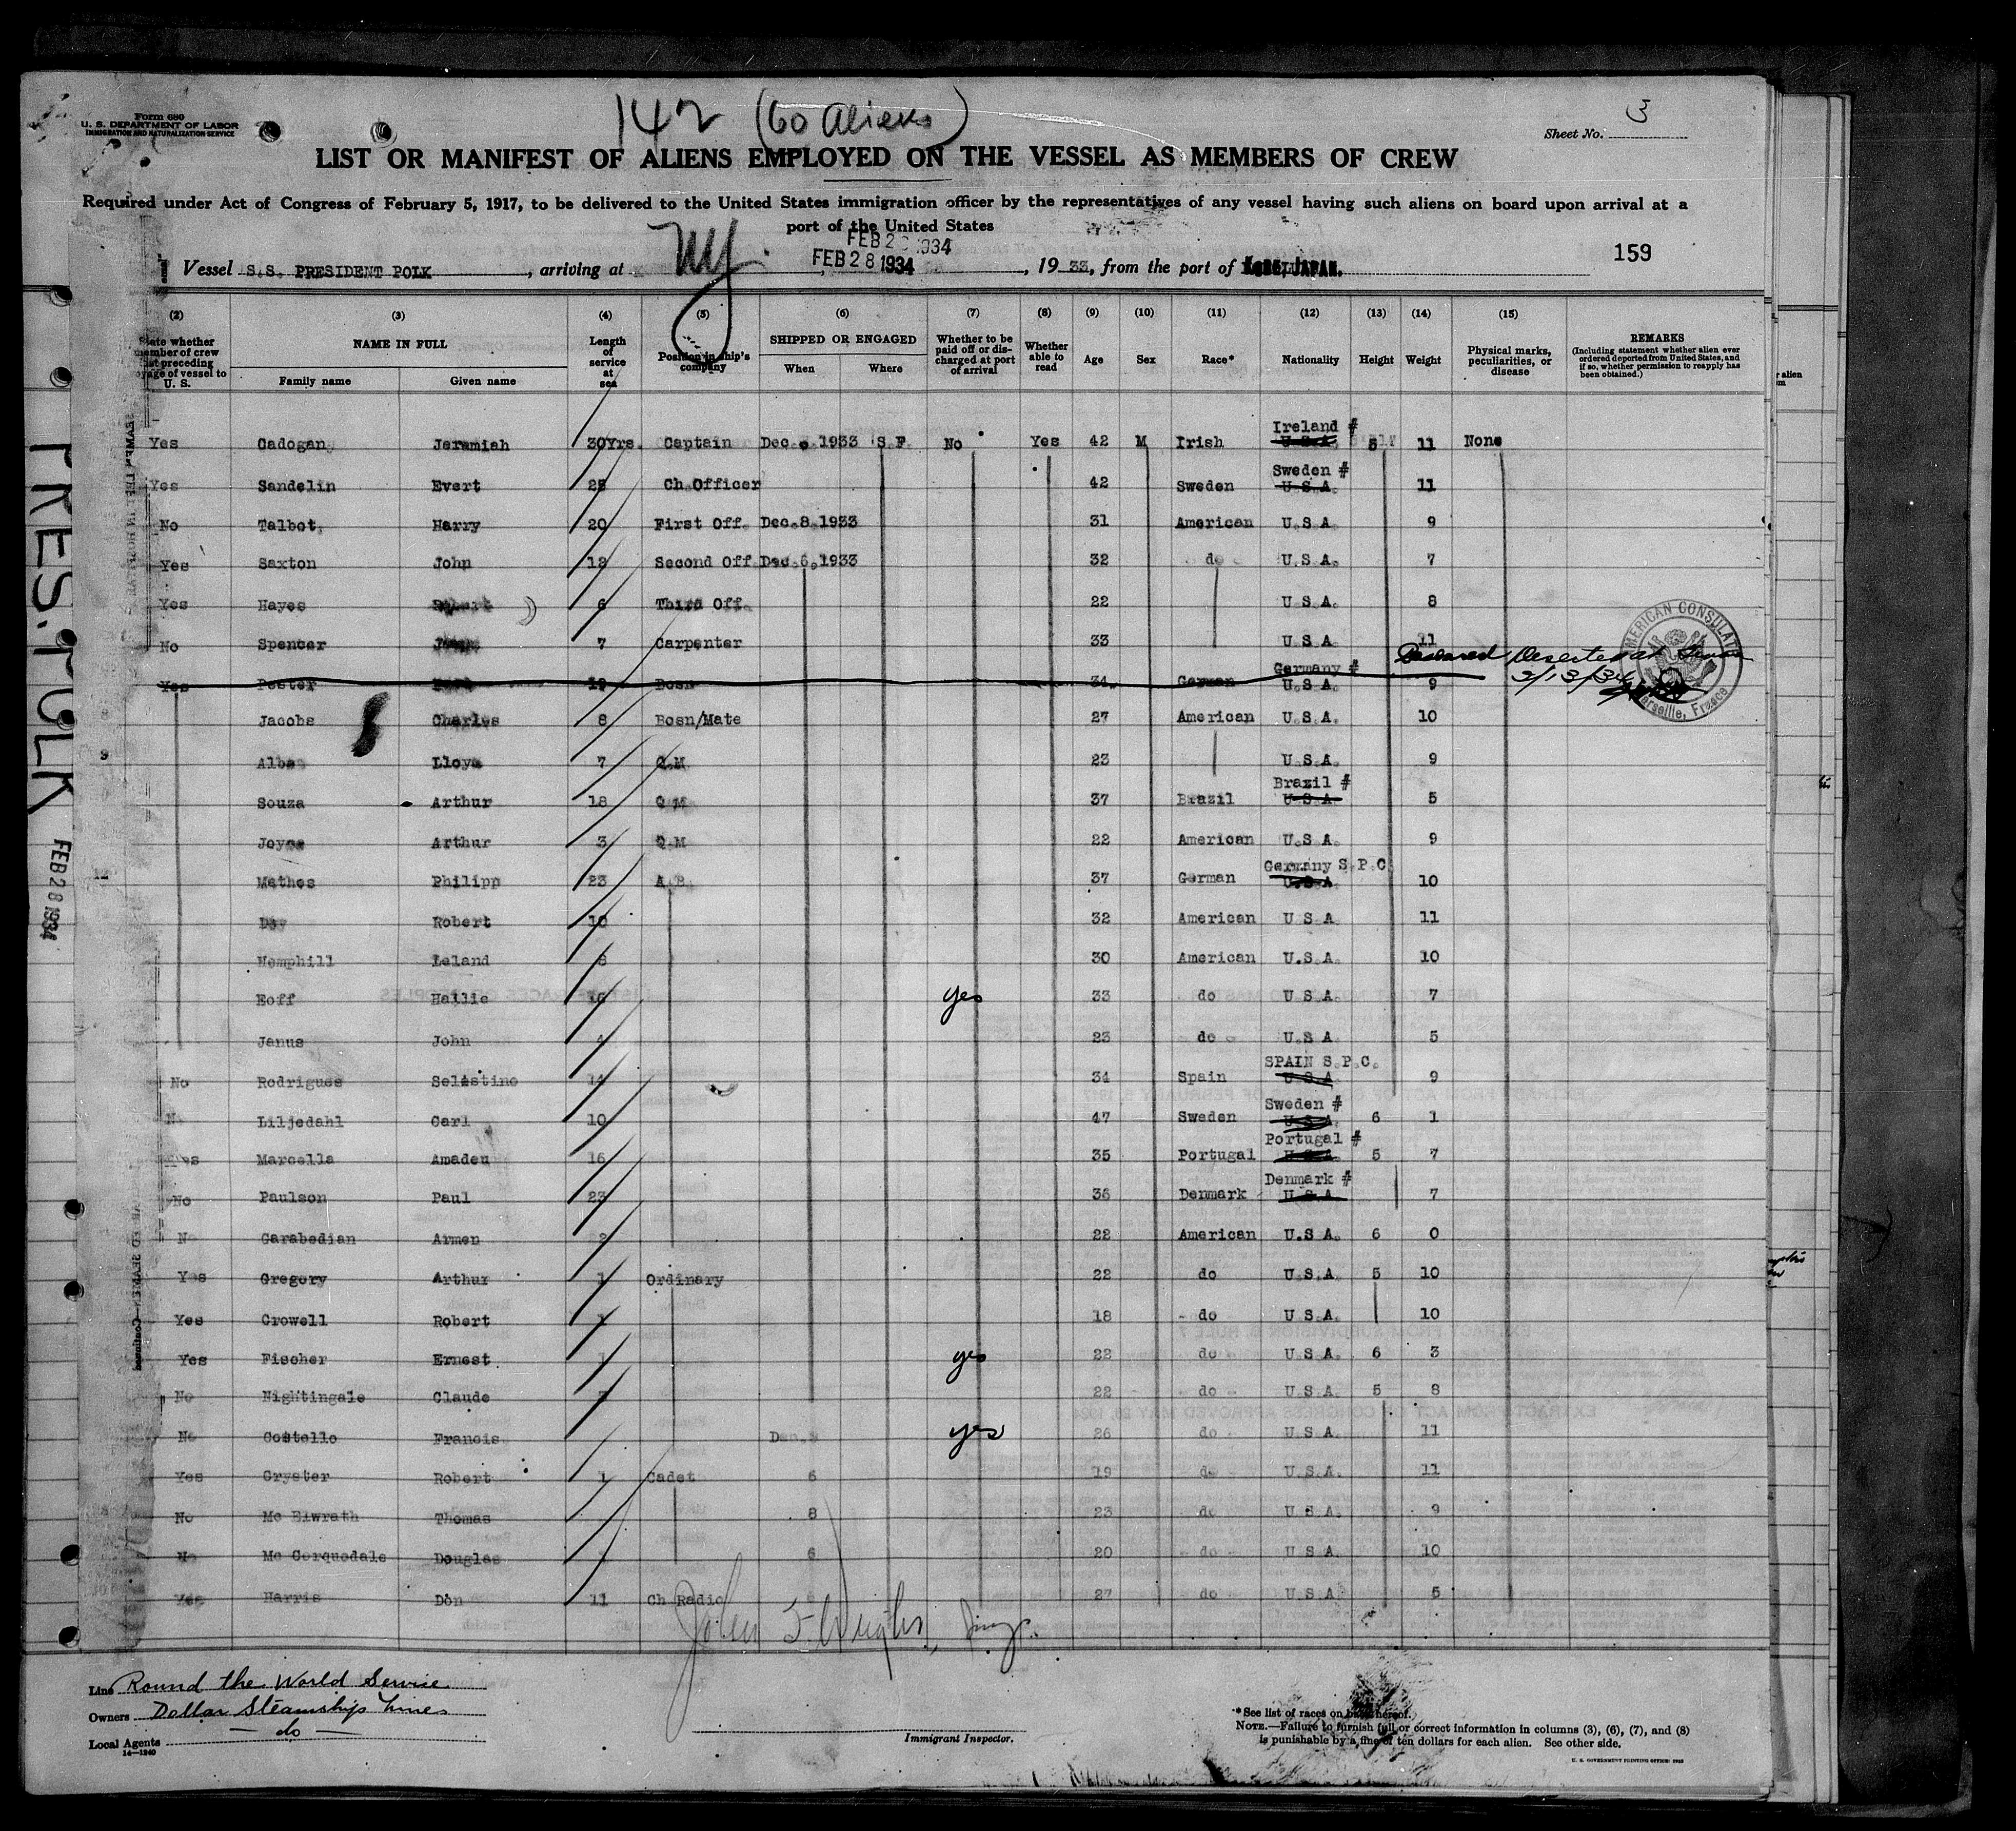 142 (60 Aliens)
Form 680
U. S. DEPARTMENT OF LABOR
IMMIGRATION AND NATURALIZATION SERVICE
Sheet No. 3
LIST OR MANIFEST OF ALIENS EMPLOYED ON THE VESSEL AS MEMBERS OF CREW
Required under Act of Congress of February 5, 1917, to be delivered to the United States immigration officer by the representatives of any vessel having such aliens on board upon arrival at a
port of the United States
FEB 2 1934
159
Vessel S.S. PRESIDENT POLK, arriving at NY. FEB 28 1934, 1933, from the port of KOBE, JAPAN.
(2) (3) (4) (5) (6) (7) (8) (9) (10) (11) (12) (13) (14) (15)
State whether member of crew last preceding voyage of vessel to U. S.
NAME IN FULL
Family name Given name
Length of service at sea
Position in ship's company
SHIPPED OR ENGAGED
When Where
Whether to be paid off or discharged at port of arrival
Whether able to read
Age Sex Race* Nationality Height Weight
Physical marks, peculiarities, or disease
REMARKS
(Including statement whether alien ever ordered deported from United States, and if so, whether permission to reapply has been obtained.)
Yes Cadogan Jeremiah 30Yrs. Captain Dec. 1933 S.F. No Yes 42 M Irish Ireland # U.S.A. 5 11 None
Yes Sandelin Evert 25 Ch.Officer 42 Sweden Sweden # U.S.A. 11
No Talbot, Harry 20 First Off. Dec.8.1933 31 American U.S.A. 9
Yes Saxton John 12 Second Off. Dec.6,1933 32 do U.S.A. 7
Yes Hayes 6 Third Off. 22 U.S.A. 8
No Spencer 7 Carpenter 33 U.S.A. 11
Yes Pester 19 Bosn 34 German Germany # U.S.A. 9 Deserted at 2/13/34
AMERICAN CONSULATE Marseille, France
Jacobs Charles 8 Bosn/Mate 27 American U.S.A. 10
9 Alba Lloyd 7 Q.M. 23 U.S.A. 9
Souza Arthur 18 Q.M. 37 Brazil Brazil # U.S.A. 5
Joyce Arthur 3 Q.M. 22 American U.S.A. 9
12 Mathes Philipp 23 A.B. 37 German Germany S.P.C. U.S.A. 10
Day Robert 10 32 American U.S.A. 11
Hemphill Leland 8 30 American U.S.A. 10
Eoff Hallie 16 yes 33 do U.S.A. 7
Janus John 4 23 do U.S.A. 5
No Rodrigues Selestino 14 34 Spain SPAIN S.P.C. U.S.A. 9
No Liljedahl Carl 10 47 Sweden Sweden # U.S.A. 6 1
Yes Marcella Amadeu 16 35 Portugal Portugal # U.S.A. 5 7
No Paulson Paul 23 36 Denmark Denmark # U.S.A. 7
No Garabedian Armen 2 22 American U.S.A. 6 0
Yes Gregory Arthur 1 Ordinary 22 do U.S.A. 5 10
Yes Crowell Robert 1 18 do U.S.A. 10
Yes Fischer Ernest 1 yes 22 do U.S.A. 6 3
No Nightingale Claude 22 do U.S.A. 5 8
No Costello Francis yes 26 do U.S.A. 11
Yes Cryster Robert 1 Cadet 6 19 do U.S.A. 11
No Mc Elwrath Thomas 8 23 do U.S.A. 9
No Mc Corquodale Douglas 6 20 do U.S.A. 10
Yes Harris Don 11 Ch Radio 27 do U.S.A. 5
PRES. POLK
FEB 28 1934
Line Round the World Service
Owners Dollar Steamship Lines
Local Agents — do —
14—1240
Immigrant Inspector.
* See list of races on back hereof.
NOTE.—Failure to furnish full or correct information in columns (3), (6), (7), and (8)
is punishable by a fine of ten dollars for each alien. See other side.
U. S. GOVERNMENT PRINTING OFFICE: 1933